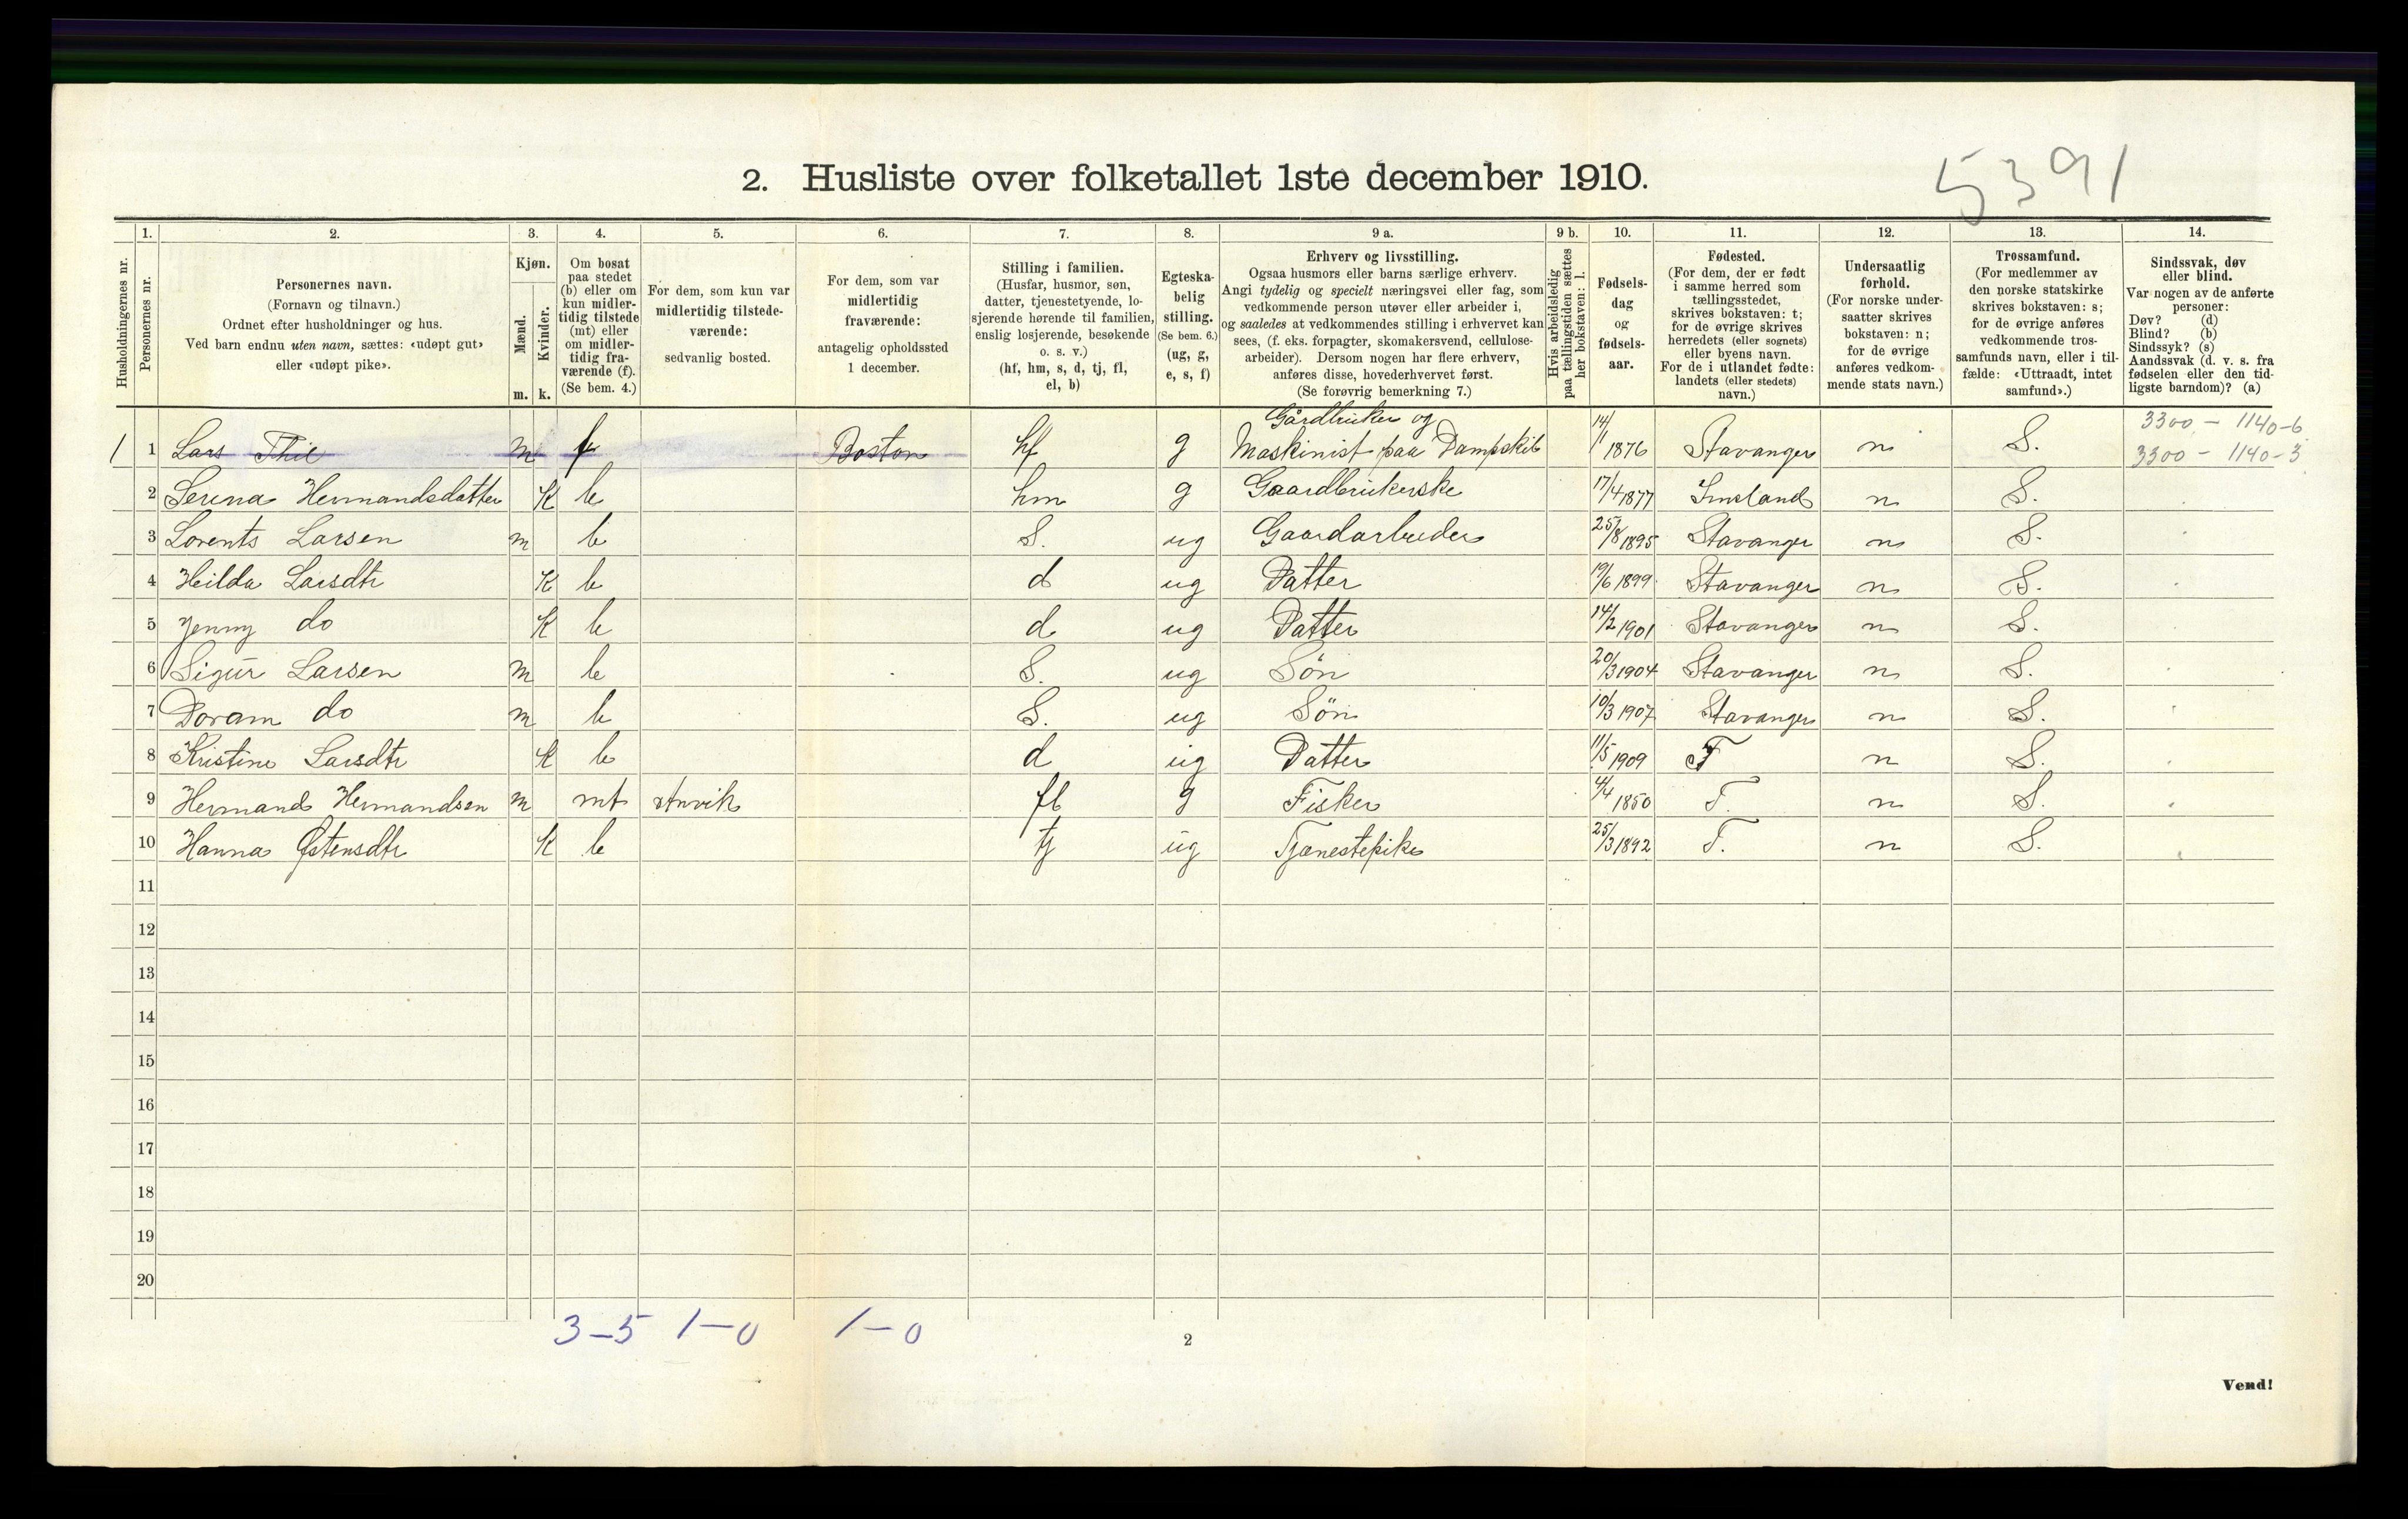 5391
2. Husliste over folketallet 1ste december 1910.
1. 2. 3. 4. 5. 6. 7. 8. 9 a. 9 b. 10. 11. 12. 13. 14.
Husholdningernes nr.
Personernes nr.
Personernes navn.
(Fornavn og tilnavn.)
Ordnet efter husholdninger og hus.
Ved barn endnu uten navn, sættes: «udøpt gut»
eller «udøpt pike».
Kjøn.
Mænd.
Kvinder.
m. k.
Om bosat
paa stedet
(b) eller om
kun midler-
tidig tilstede
(mt) eller
om midler-
tidig fra-
værende (f).
(Se bem. 4.)
For dem, som kun var
midlertidig tilstede-
værende:
sedvanlig bosted.
For dem, som var
midlertidig
fraværende:
antagelig opholdssted
1 december.
Stilling i familien.
(Husfar, husmor, søn,
datter, tjenestetyende, lo-
sjerende hørende til familien,
enslig losjerende, besøkende
o. s. v.)
(hf, hm, s, d, tj, fl,
el, b)
Egteska-
belig
stilling.
(Se bem. 6.)
(ug, g,
e, s, f)
Erhverv og livsstilling.
Ogsaa husmors eller barns særlige erhverv.
Angi tydelig og specielt næringsvei eller fag, som
vedkommende person utøver eller arbeider i,
og saaledes at vedkommendes stilling i erhvervet kan
sees, (f. eks. forpagter, skomakersvend, cellulose-
arbeider). Dersom nogen har flere erhverv,
anføres disse, hovederhvervet først.
(Se forøvrig bemerkning 7.)
Hvis arbeidsledig
paa tællingstiden sættes
her bokstaven: l.
Fødsels-
dag
og
fødsels-
aar.
Fødested.
(For dem, der er født
i samme herred som
tællingsstedet,
skrives bokstaven: t;
for de øvrige skrives
herredets (eller sognets)
eller byens navn.
For de i utlandet fødte:
landets (eller stedets)
navn.)
Undersaatlig
forhold.
(For norske under-
saatter skrives
bokstaven: n;
for de øvrige
anføres vedkom-
mende stats navn.)
Trossamfund.
(For medlemmer av
den norske statskirke
skrives bokstaven: s;
for de øvrige anføres
vedkommende tros-
samfunds navn, eller i til-
fælde: «Uttraadt, intet
samfund».)
Sindssvak, døv
eller blind.
Var nogen av de anførte
personer:
Døv? (d)
Blind? (b)
Sindssyk? (s)
Aandssvak (d. v. s. fra
fødselen eller den tid-
ligste barndom)? (a)
Gårdbruker og 3300 - 1140-6
1 1 Lars m f Boston hf g Maskinist paa Dampskib 14/1 1876 Stavanger n S. 3300 - 1140-3
2 Serina Hermandsdatter K b hm g Gaardbrukerske 17/4 1877 Imsland n S.
3 Lorents Larsen m b S. ug Gaardarbeider 25/8 1895 Stavanger n S.
4 Hilda Larsdtr K b d ug Datter 19/6 1899 Stavanger n S.
5 Jenny do K b d ug Datter 14/2 1901 Stavanger n S.
6 Sigur Larsen m b S. ug Søn 20/3 1904 Stavanger n S.
7 Doram do m b S. ug Søn 10/3 1907 Stavanger n S.
8 Kristine Larsdtr K b d ug Datter 11/5 1909 T n S.
9 Hermand Hermandsen m mt Anvik fl g Fisker 4/4 1850 T. n S.
10 Hanna Østensdtr K b tj ug Tjenestepike 25/3 1892 T. n S.
11
12
13
14
15
16
17
18
19
20
3-5 1-0 1-0
2
Vend!